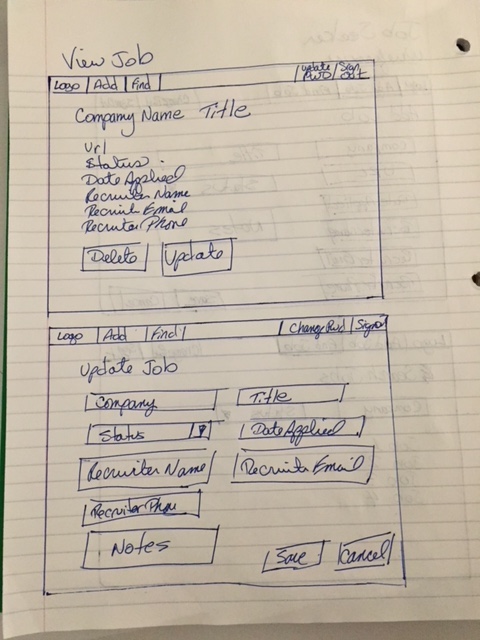 View Job
Logo Add Find Update PWD Sign out
Company Name Title
Url
Status
Date Applied
Recruiter Name
Recruiter Email
Recruiter Phone
Delete Update
Logo Add Find Change Pwd Signout
Update Job
Company Title
Status Date Applied
Recruiter Name Recruiter Email
Recruiter Phone
Notes
Save Cancel